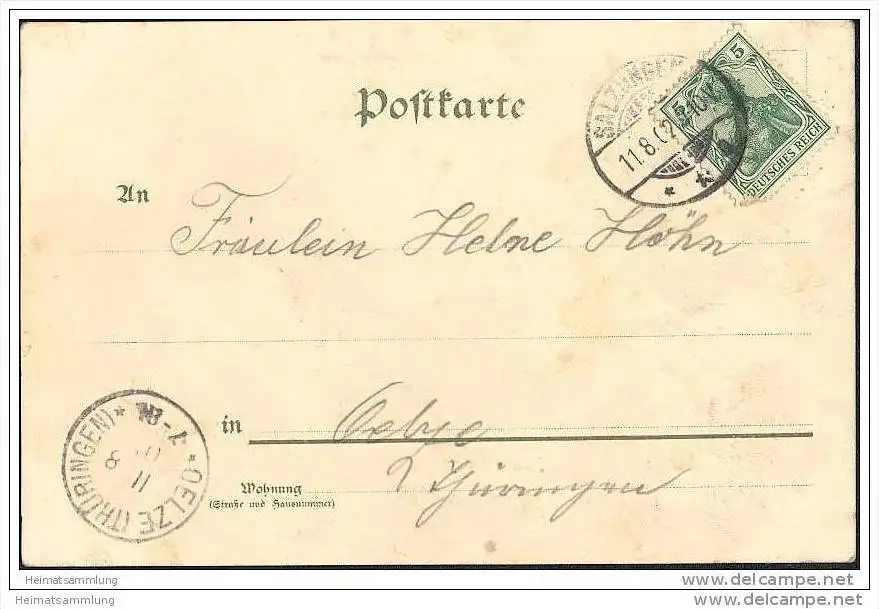 Postkarte
SALZUNGEN
11.8.02
5 5
DEUTSCHES REICH
An
Fräulein Helne Höhn
in Oelze
Thüringen
Wohnung
(Straße und Hausnummer)
* OELZE (THÜRINGEN) *
11 8
Heimatsammlung
www.delcampe.net
Heimatsammlung
www.delcampe.net